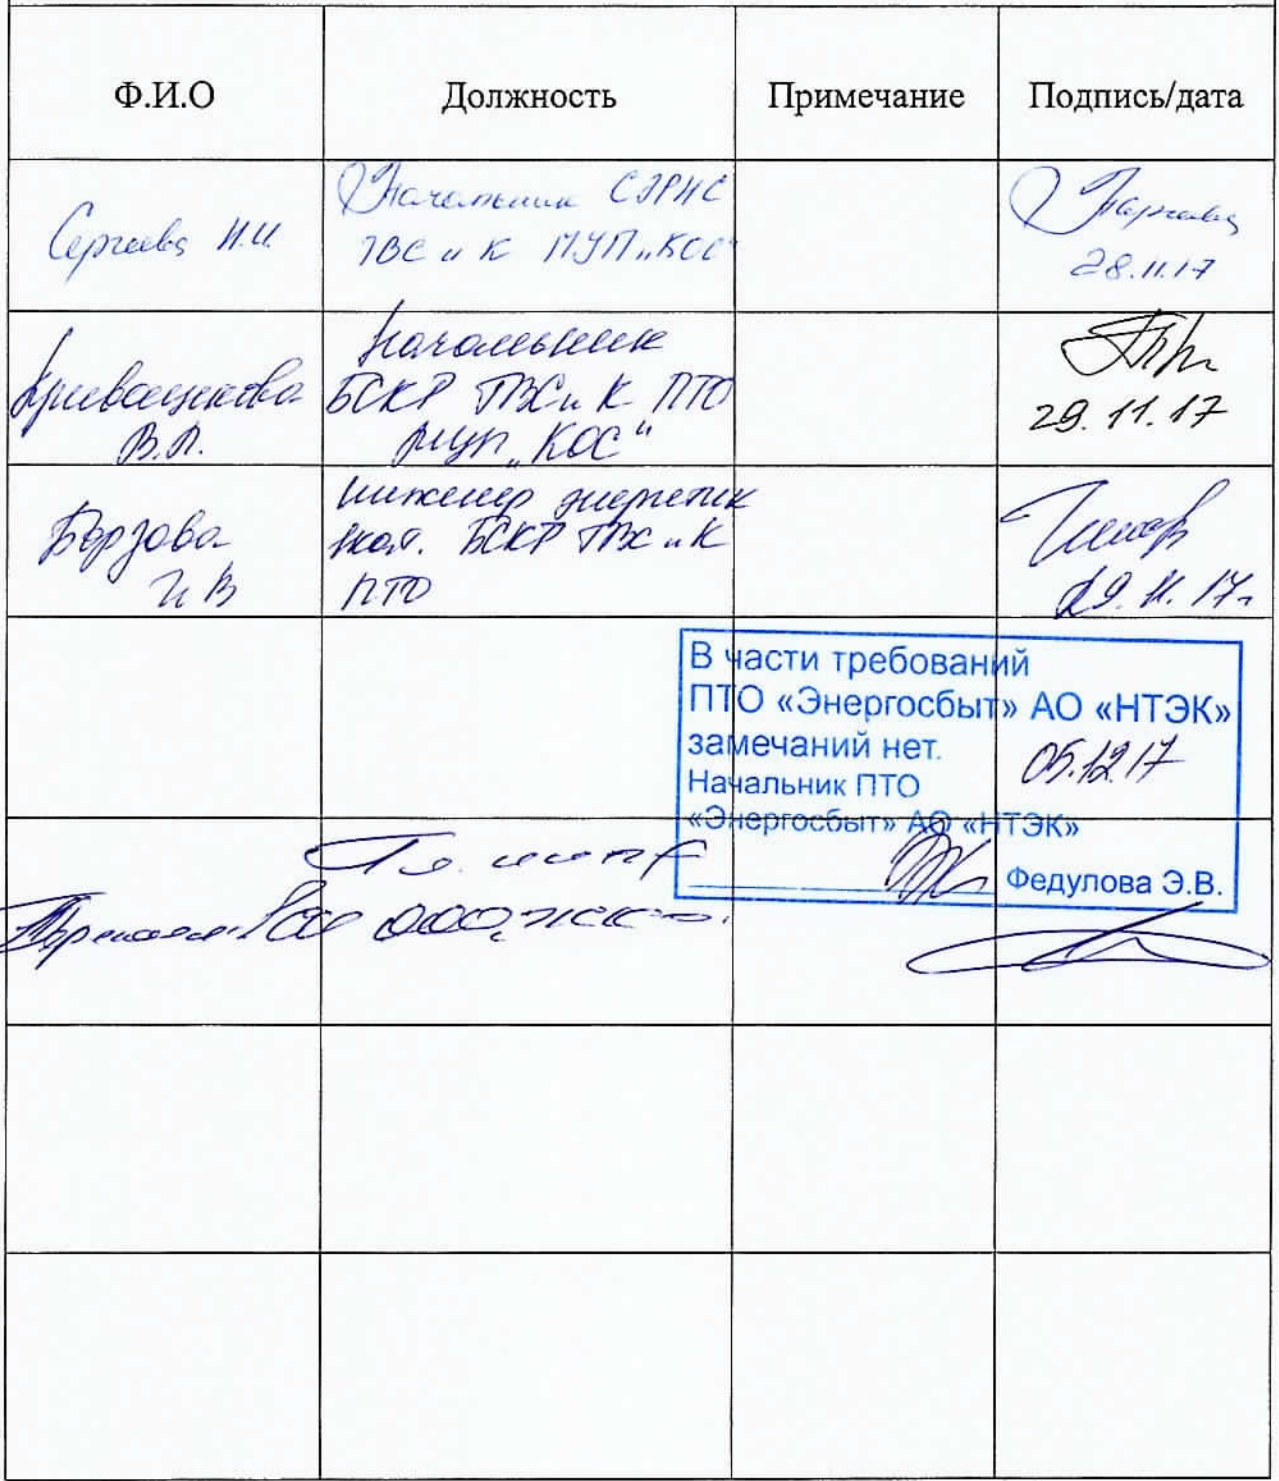 Ф.И.О Должность Примечание Подпись/дата
Сергеева Н.И.
Начальник СЭРНС
ТВС и К МУП „КОС"
28.11.17
Кривощекова
В.П.
Начальник
БСКР ТВС и К ПТО
МУП „КОС"
29.11.17
Борзова
И В
инженер энергетик
БСКР ТВС и К
ПТО
29.11.17г
В части требований
ПТО «Энергосбыт» АО «НТЭК»
замечаний нет.
05.12.17
Начальник ПТО
«Энергосбыт» АО «НТЭК»
Федулова Э.В.
Гл.
ООО